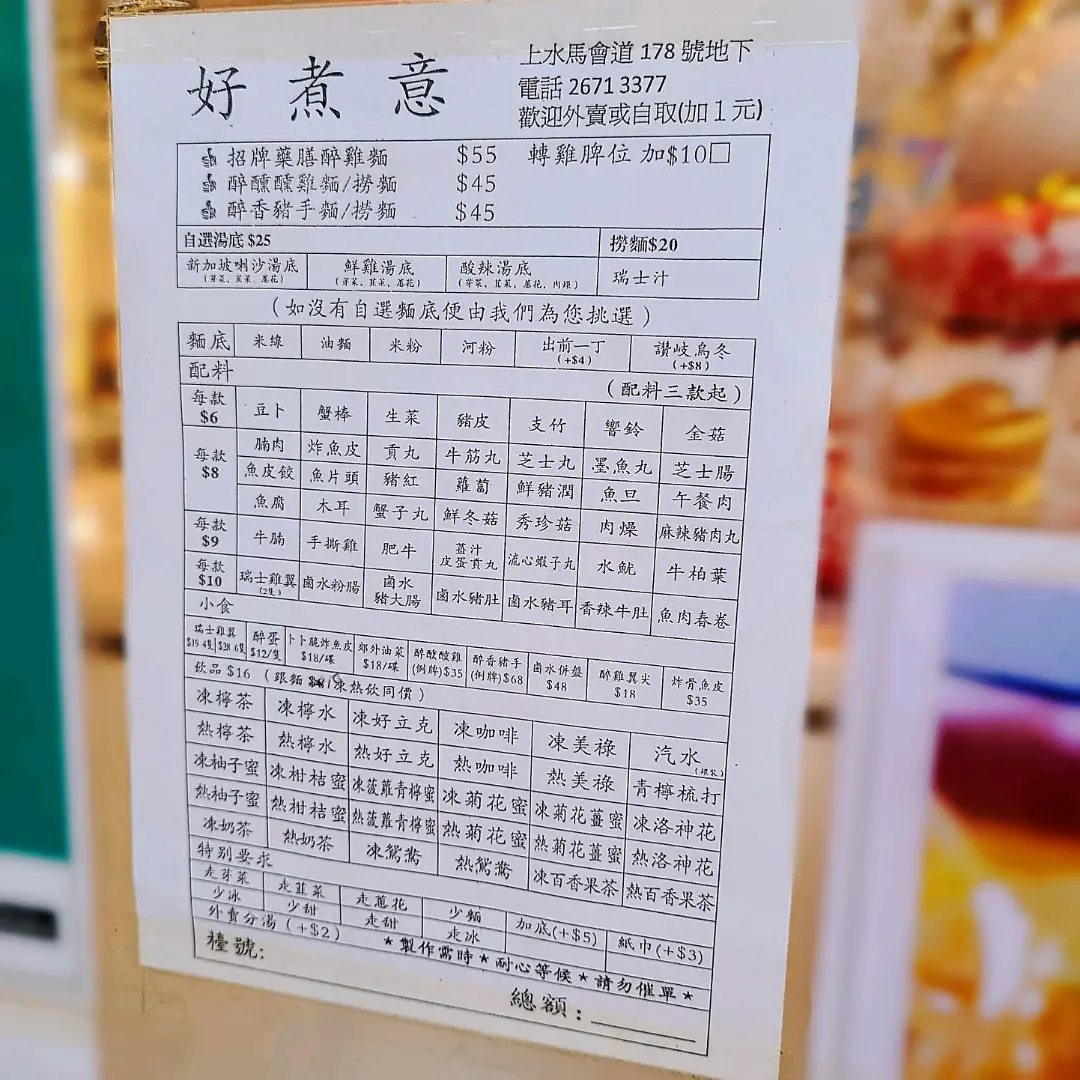 好煮意
上水馬會道178號地下
電話 2671 3377
歡迎外賣或自取(加1元)
招牌藥膳醉雞麵 $55 轉雞脾位 加$10□
醉醺醺雞麵/撈麵 $45
醉香豬手麵/撈麵 $45
自選湯底 $25 撈麵$20
新加坡喇沙湯底 鮮雞湯底 酸辣湯底 瑞士汁
(芽菜、韮菜、蔥花) (芽菜、韮菜、蔥花) (芽菜、韮菜、蔥花、肉燥)
(如沒有自選麵底便由我們為您挑選)
麵底 米線 油麵 米粉 河粉 出前一丁 讚岐烏冬
(+$4) (+$8)
配料 (配料三款起)
每款 $6 豆卜 蟹棒 生菜 豬皮 支竹 響鈴 金菇
每款 $8 腩肉 炸魚皮 貢丸 牛筋丸 芝士丸 墨魚丸 芝士腸
魚皮餃 魚片頭 豬紅 蘿蔔 鮮豬潤 魚旦 午餐肉
魚腐 木耳 蟹子丸 鮮冬菇 秀珍菇 肉燥 麻辣豬肉丸
每款 $9 牛腩 手撕雞 肥牛 薑汁皮蛋貢丸 流心蝦子丸 水魷 牛柏葉
每款 $10 瑞士雞翼(2隻) 鹵水粉腸 鹵水豬大腸 鹵水豬肚 鹵水豬耳 香辣牛肚 魚肉春卷
小食
瑞士雞翼 醉蛋 卜卜脆炸魚皮 郊外油菜 醉酸雞 醉香豬手 鹵水併盤 醉雞翼尖 炸骨魚皮
$19 4隻 $28 6隻 $12/隻 $18/碟 $18/碟 (例牌)$35 (例牌)$68 $48 $18 $35
飲品 $16 (跟麵 凍熱飲同價)
凍檸茶 凍檸水 凍好立克 凍咖啡 凍美祿 汽水
熱檸茶 熱檸水 熱好立克 熱咖啡 熱美祿 青檸梳打
凍柚子蜜 凍柑桔蜜 凍菠蘿青檸蜜 凍菊花蜜 凍菊花薑蜜 凍洛神花
熱柚子蜜 熱柑桔蜜 熱菠蘿青檸蜜 熱菊花蜜 熱菊花薑蜜 熱洛神花
凍奶茶 熱奶茶 凍鴛鴦 熱鴛鴦 凍百香果茶 熱百香果茶
特別要求
走芽菜 走韮菜 走蔥花 少麵 加底(+$5) 紙巾(+$3)
少冰 少甜 走甜 走冰
外賣分湯(+$2) ★製作需時★耐心等候★請勿催單★
檯號:
總額: